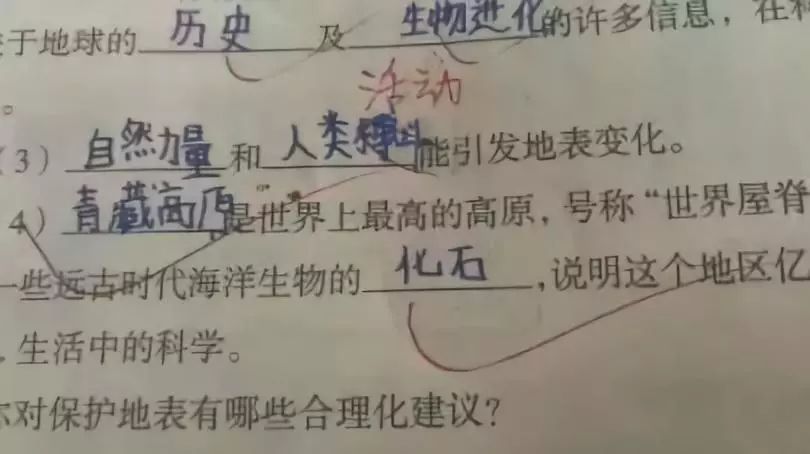 于地球的 历史 及 生物进化的许多信息，在
活动
。
(3) 自然力量 和 人类 能引发地表变化。
4) 青藏高原 是世界上最高的高原，号称“世界屋脊
一些远古时代海洋生物的 化石 ,说明这个地区亿
. 生活中的科学。
你对保护地表有哪些合理化建议？